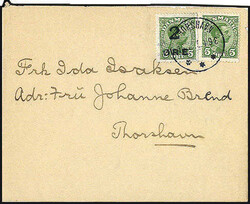 2
ØRE
5
5
THORSHAVN
Frk Ida Isaksen
Adr: Frú Johanne Brend
Thorshavn